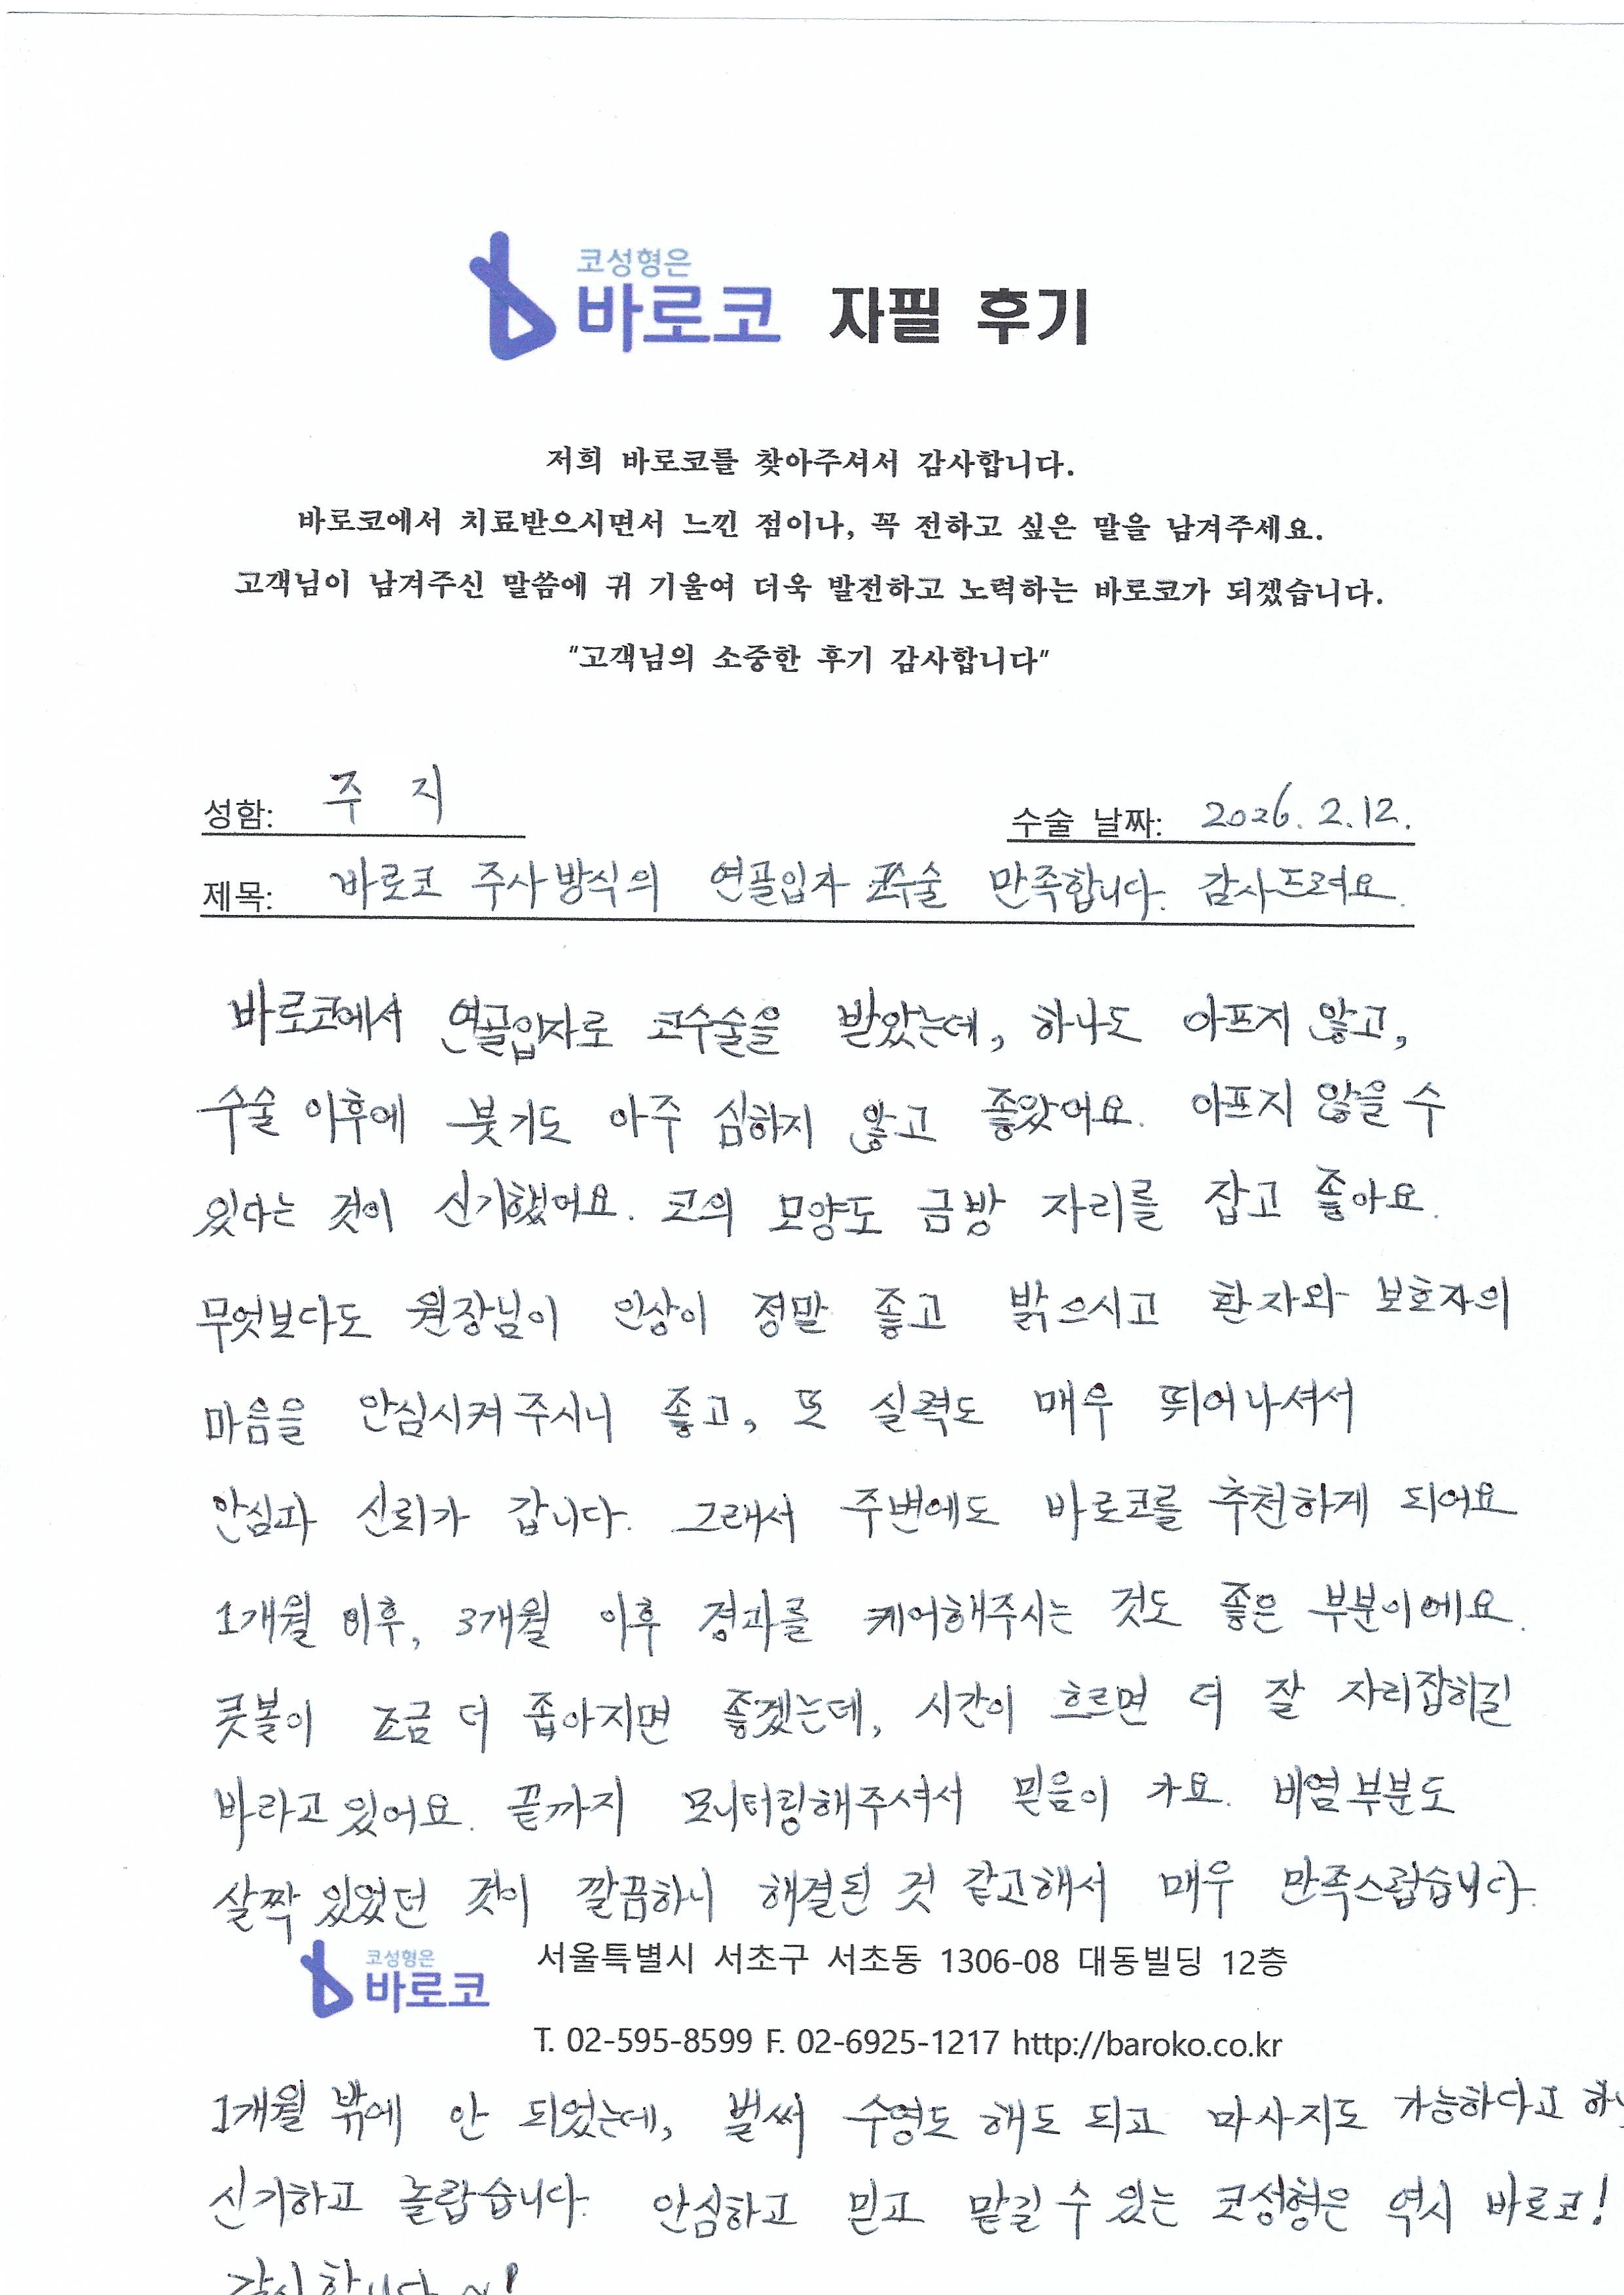 코성형은
바로코 자필 후기
저희 바로코를 찾아주셔서 감사합니다.
바로코에서 치료받으시면서 느낀 점이나, 꼭 전하고 싶은 말을 남겨주세요.
고객님이 남겨주신 말씀에 귀 기울여 더욱 발전하고 노력하는 바로코가 되겠습니다.
"고객님의 소중한 후기 감사합니다"
성함: 주 지
수술 날짜: 2026. 2. 12.
제목: 바로코 주사방식의 연골입자 코수술 만족합니다. 감사드려요.
바로코에서 연골입자로 코수술을 받았는데, 하나도 아프지 않고,
수술 이후에 붓기도 아주 심하지 않고 좋았어요. 아프지 않을 수
있다는 것이 신기했어요. 코의 모양도 금방 자리를 잡고 좋아요.
무엇보다도 원장님이 인상이 정말 좋고 밝으시고 환자와 보호자의
마음을 안심시켜 주시니 좋고, 또 실력도 매우 뛰어나셔서
안심과 신뢰가 갑니다. 그래서 주변에도 바로코를 추천하게 되어요
1개월 이후, 3개월 이후 경과를 케어해주시는 것도 좋은 부분이에요.
콧볼이 조금 더 좁아지면 좋겠는데, 시간이 흐르면 더 잘 자리잡히길
바라고 있어요. 끝까지 모니터링해주셔서 믿음이 가요. 비염부분도
살짝 있었던 것이 깔끔하니 해결된 것 같고해서 매우 만족스럽습니다.
코성형은
바로코
서울특별시 서초구 서초동 1306-08 대동빌딩 12층
T. 02-595-8599 F. 02-6925-1217 http://baroko.co.kr
1개월 밖에 안 되었는데, 벌써 수영도 해도 되고 마사지도 가능하다고
신기하고 놀랍습니다. 안심하고 믿고 맡길 수 있는 코성형은 역시 바로코!
감사합니다 ~!